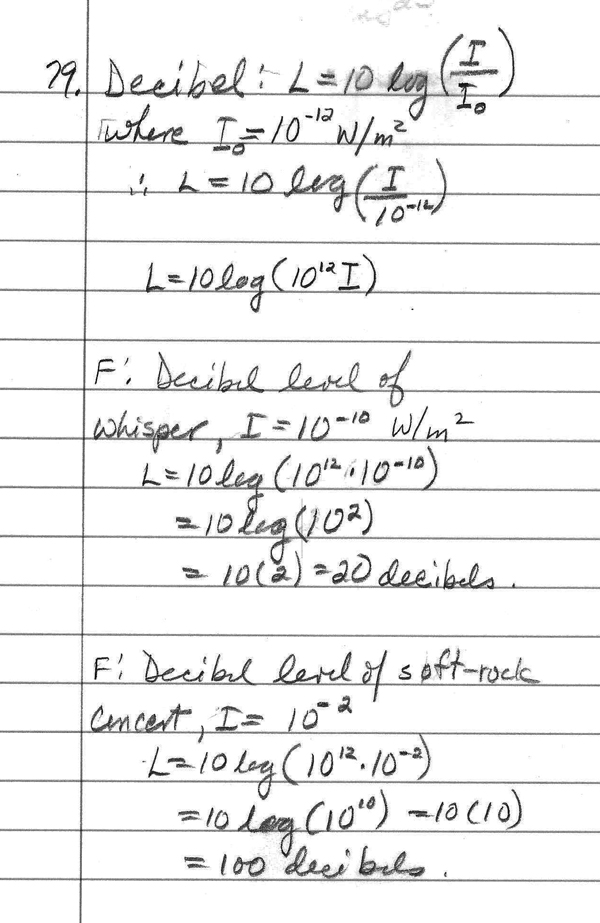 79. Decibel: L = 10 log(I/I₀)
where I₀ = 10⁻¹² W/m²
∴ L = 10 log(I/10⁻¹²)
L = 10 log(10¹² I)
F: Decibel level of
whisper, I = 10⁻¹⁰ W/m²
L = 10 log(10¹² · 10⁻¹⁰)
= 10 log(10²)
= 10(2) = 20 decibels.
F: Decibel level of soft-rock
concert, I = 10⁻²
L = 10 log(10¹² · 10⁻²)
= 10 log(10¹⁰) = 10(10)
= 100 decibels.